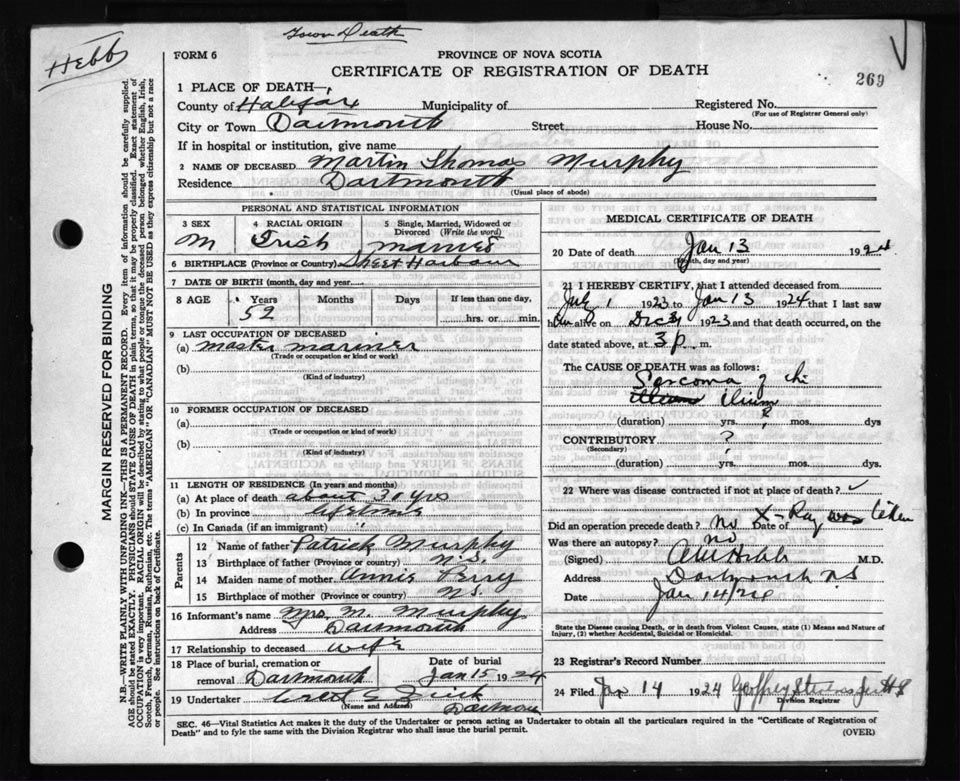 Hebb
Town Death
FORM 6
PROVINCE OF NOVA SCOTIA
CERTIFICATE OF REGISTRATION OF DEATH
269
1 PLACE OF DEATH—
County of Halifax Municipality of Registered No.
(For use of Registrar General only)
City or Town Dartmouth Street House No.
If in hospital or institution, give name
2 NAME OF DECEASED Martin Thomas Murphy
Residence Dartmouth
(Usual place of abode)
PERSONAL AND STATISTICAL INFORMATION
3 SEX 4 RACIAL ORIGIN 5 Single, Married, Widowed or Divorced (Write the word)
M Irish married
6 BIRTHPLACE (Province or Country) Sheet Harbour
7 DATE OF BIRTH (month, day and year)
8 AGE Years Months Days If less than one day,
52 hrs. or min.
9 LAST OCCUPATION OF DECEASED
(a) master mariner
(Trade or occupation or kind or work)
(b)
(Kind of industry)
10 FORMER OCCUPATION OF DECEASED
(a)
(Trade or occupation or kind of work)
(b)
(Kind of industry)
11 LENGTH OF RESIDENCE (In years and months)
(a) At place of death about 30 yrs
(b) In province lifetime
(c) In Canada (if an immigrant) "
Parents
12 Name of father Patrick Murphy
13 Birthplace of father (Province or country) N.S.
14 Maiden name of mother Annie Perry
15 Birthplace of mother (Province or country) N.S.
16 Informant's name Mrs. M. Murphy
Address Dartmouth
17 Relationship to deceased wife
18 Place of burial, cremation or Date of burial
removal Dartmouth Jan 15 1924
19 Undertaker
(Name and Address)
Dartmouth
MEDICAL CERTIFICATE OF DEATH
20 Date of death Jan 13 1924
(Month, day and year)
21 I HEREBY CERTIFY, that I attended deceased from
July 1 1923 to Jan 13 1924 that I last saw
him alive on Dec 31 1923 and that death occurred, on
date stated above, at 3 p. m.
The CAUSE OF DEATH was as follows:
Sarcoma of the
Ilium
(duration) yrs. mos. dys
CONTRIBUTORY ?
(Secondary)
(duration) yrs. mos. dys.
22 Where was disease contracted if not at place of death?
Did an operation precede death? no Date of X-Ray was taken
Was there an autopsy? no
(Signed) Hebb M.D.
Address Dartmouth NS
Date Jan 14/24
State the Disease causing Death, or in death from Violent Causes, state (1) Means and Nature of
Injury, (2) whether Accidental, Suicidal or Homicidal.
23 Registrar's Record Number
24 Filed Jan 14 1924 Geoffrey Stevens
Division Registrar
SEC. 46—Vital Statistics Act makes it the duty of the Undertaker or person acting as Undertaker to obtain all the particulars required in the "Certificate of Registration of
Death" and to fyle the same with the Division Registrar who shall issue the burial permit.
(OVER)
MARGIN RESERVED FOR BINDING
N.B.—WRITE PLAINLY WITH UNFADING INK—THIS IS A PERMANENT RECORD. Every item of information should be carefully supplied.
AGE should be stated EXACTLY. PHYSICIANS should STATE CAUSE OF DEATH in plain terms, so that it may be properly classified. Exact statement of
OCCUPATION is very important. RACIAL ORIGIN will be described by stating to what people or tongue the deceased person belonged whether English, Irish,
Scotch, French, German, Russian, Ruthenian, etc. The terms "AMERICAN" or "CANADIAN" MUST NOT BE USED as they express citizenship but not a race
or people. See instructions on back of Certificate.